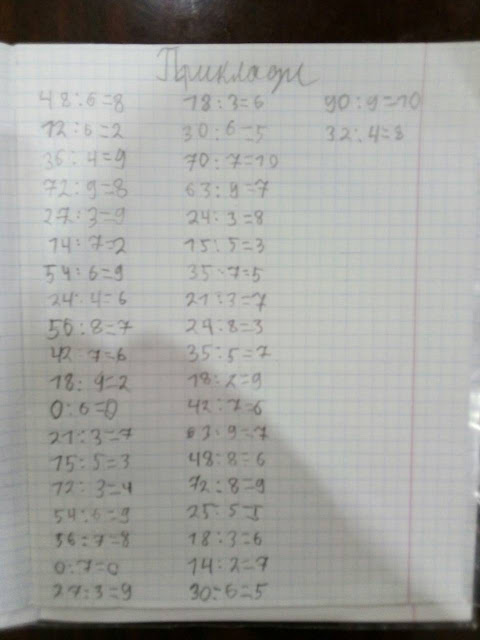 Приклади
48:6=8 18:3=6 90:9=10
12:6=2 30:6=5 32:4=8
36:4=9 70:7=10
72:9=8 63:9=7
27:3=9 24:3=8
14:7=2 15:5=3
54:6=9 35:7=5
24:4=6 21:3=7
56:8=7 24:8=3
42:7=6 35:5=7
18:9=2 18:2=9
0:6=0 42:7=6
21:3=7 63:9=7
15:5=3 48:8=6
12:3=4 72:8=9
54:6=9 25:5=5
56:7=8 18:3=6
0:7=0 14:2=7
27:3=9 30:6=5